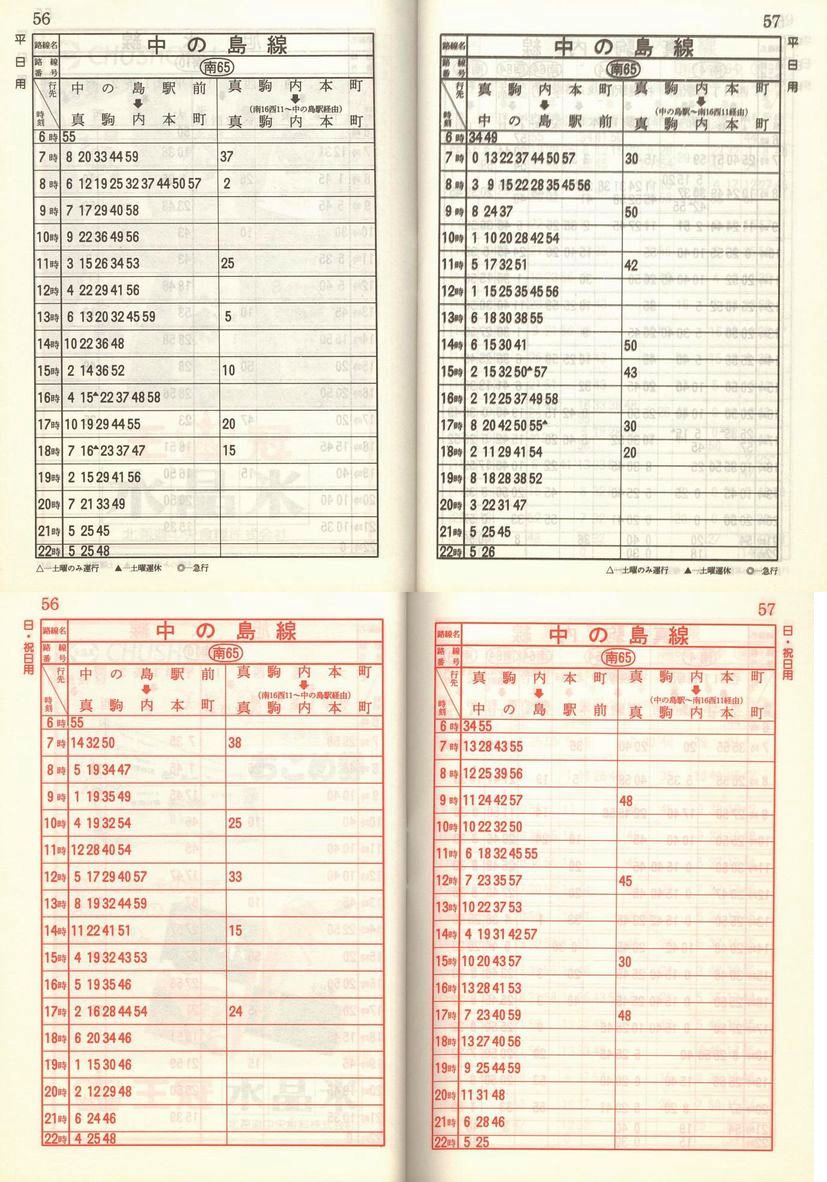 56
平日用
路線名 中の島線
路線番号 南65
行先 時刻
中の島駅前 真駒内本町
(南16西11〜中の島駅経由)
真駒内本町 真駒内本町
6時 55
7時 8 20 33 44 59 37
8時 6 12 19 25 32 37 44 50 57 2
9時 7 17 29 40 58
10時 9 22 36 49 56
11時 3 15 26 34 53 25
12時 4 22 29 41 56
13時 6 13 20 32 45 59 5
14時 10 22 36 48
15時 2 14 36 52 10
16時 4 15▲ 22 37 48 58
17時 10 19 29 44 55 20
18時 7 16▲ 23 37 47 15
19時 2 15 29 41 56
20時 7 21 33 49
21時 5 25 45
22時 5 25 48
△─土曜のみ運行 ▲─土曜運休 ◎─急行
57
平日用
路線名 中の島線
路線番号 南65
行先 時刻
真駒内本町 真駒内本町
(中の島駅〜南16西11経由)
中の島駅前 真駒内本町
6時 34 49
7時 0 13 22 37 44 50 57 30
8時 3 9 15 22 28 35 45 56
9時 8 24 37 50
10時 1 10 20 28 42 54
11時 5 17 32 51 42
12時 1 15 25 35 45 56
13時 6 18 30 38 55
14時 6 15 30 41 50
15時 2 15 32 50▲ 57 43
16時 2 12 25 37 49 58
17時 8 20 42 50 55▲ 30
18時 2 11 29 41 54 20
19時 8 18 28 38 52
20時 3 22 31 47
21時 5 25 45
22時 5 26
△─土曜のみ運行 ▲─土曜運休 ◎─急行
56
日・祝日用
路線名 中の島線
路線番号 南65
行先 時刻
中の島駅前 真駒内本町
(南16西11〜中の島駅経由)
真駒内本町 真駒内本町
6時 55
7時 14 32 50 38
8時 5 19 34 47
9時 1 19 35 49
10時 4 19 32 54 25
11時 12 28 40 54
12時 5 17 29 40 57 33
13時 8 19 32 44 59
14時 11 22 41 51 15
15時 4 19 32 43 53
16時 5 19 35 46
17時 2 16 28 44 54 24
18時 6 20 34 46
19時 1 15 30 46
20時 2 12 29 48
21時 6 24 46
22時 4 25 48
57
日・祝日用
路線名 中の島線
路線番号 南65
行先 時刻
真駒内本町 真駒内本町
(中の島駅〜南16西11経由)
中の島駅前 真駒内本町
6時 34 55
7時 13 28 43 55
8時 12 25 39 56
9時 11 24 42 57 48
10時 10 22 32 50
11時 6 18 32 45 55
12時 7 23 35 57 45
13時 10 22 37 53
14時 4 19 31 42 57
15時 10 20 43 57 30
16時 13 28 41 53
17時 7 23 40 59 48
18時 13 27 40 56
19時 9 25 44 59
20時 11 31 48
21時 6 28 46
22時 5 25